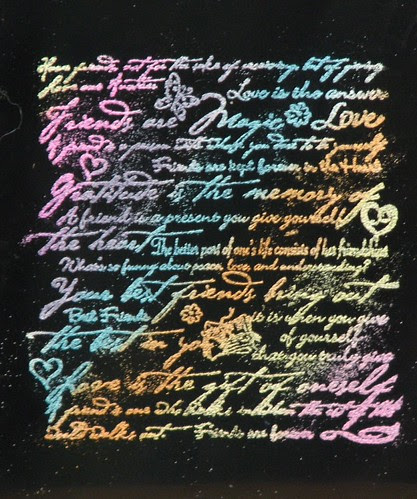 Have friends not for the sake of receiving, but of giving
Love is the answer
Friends are Magic Love
A friend is a person with whom you dare to be yourself
Friends are kept forever in the Heart
Gratitude is the memory of
A friend is a present you give yourself
the heart The better part of one's life consists of his friendships
What's so funny about peace, love, and understanding?
Your best friends bring out
Best Friends it is when you give
the best in you of yourself
that you truly give
Love is the gift of oneself
friend is one who walks in when the rest of the
world walks out Friends are forever